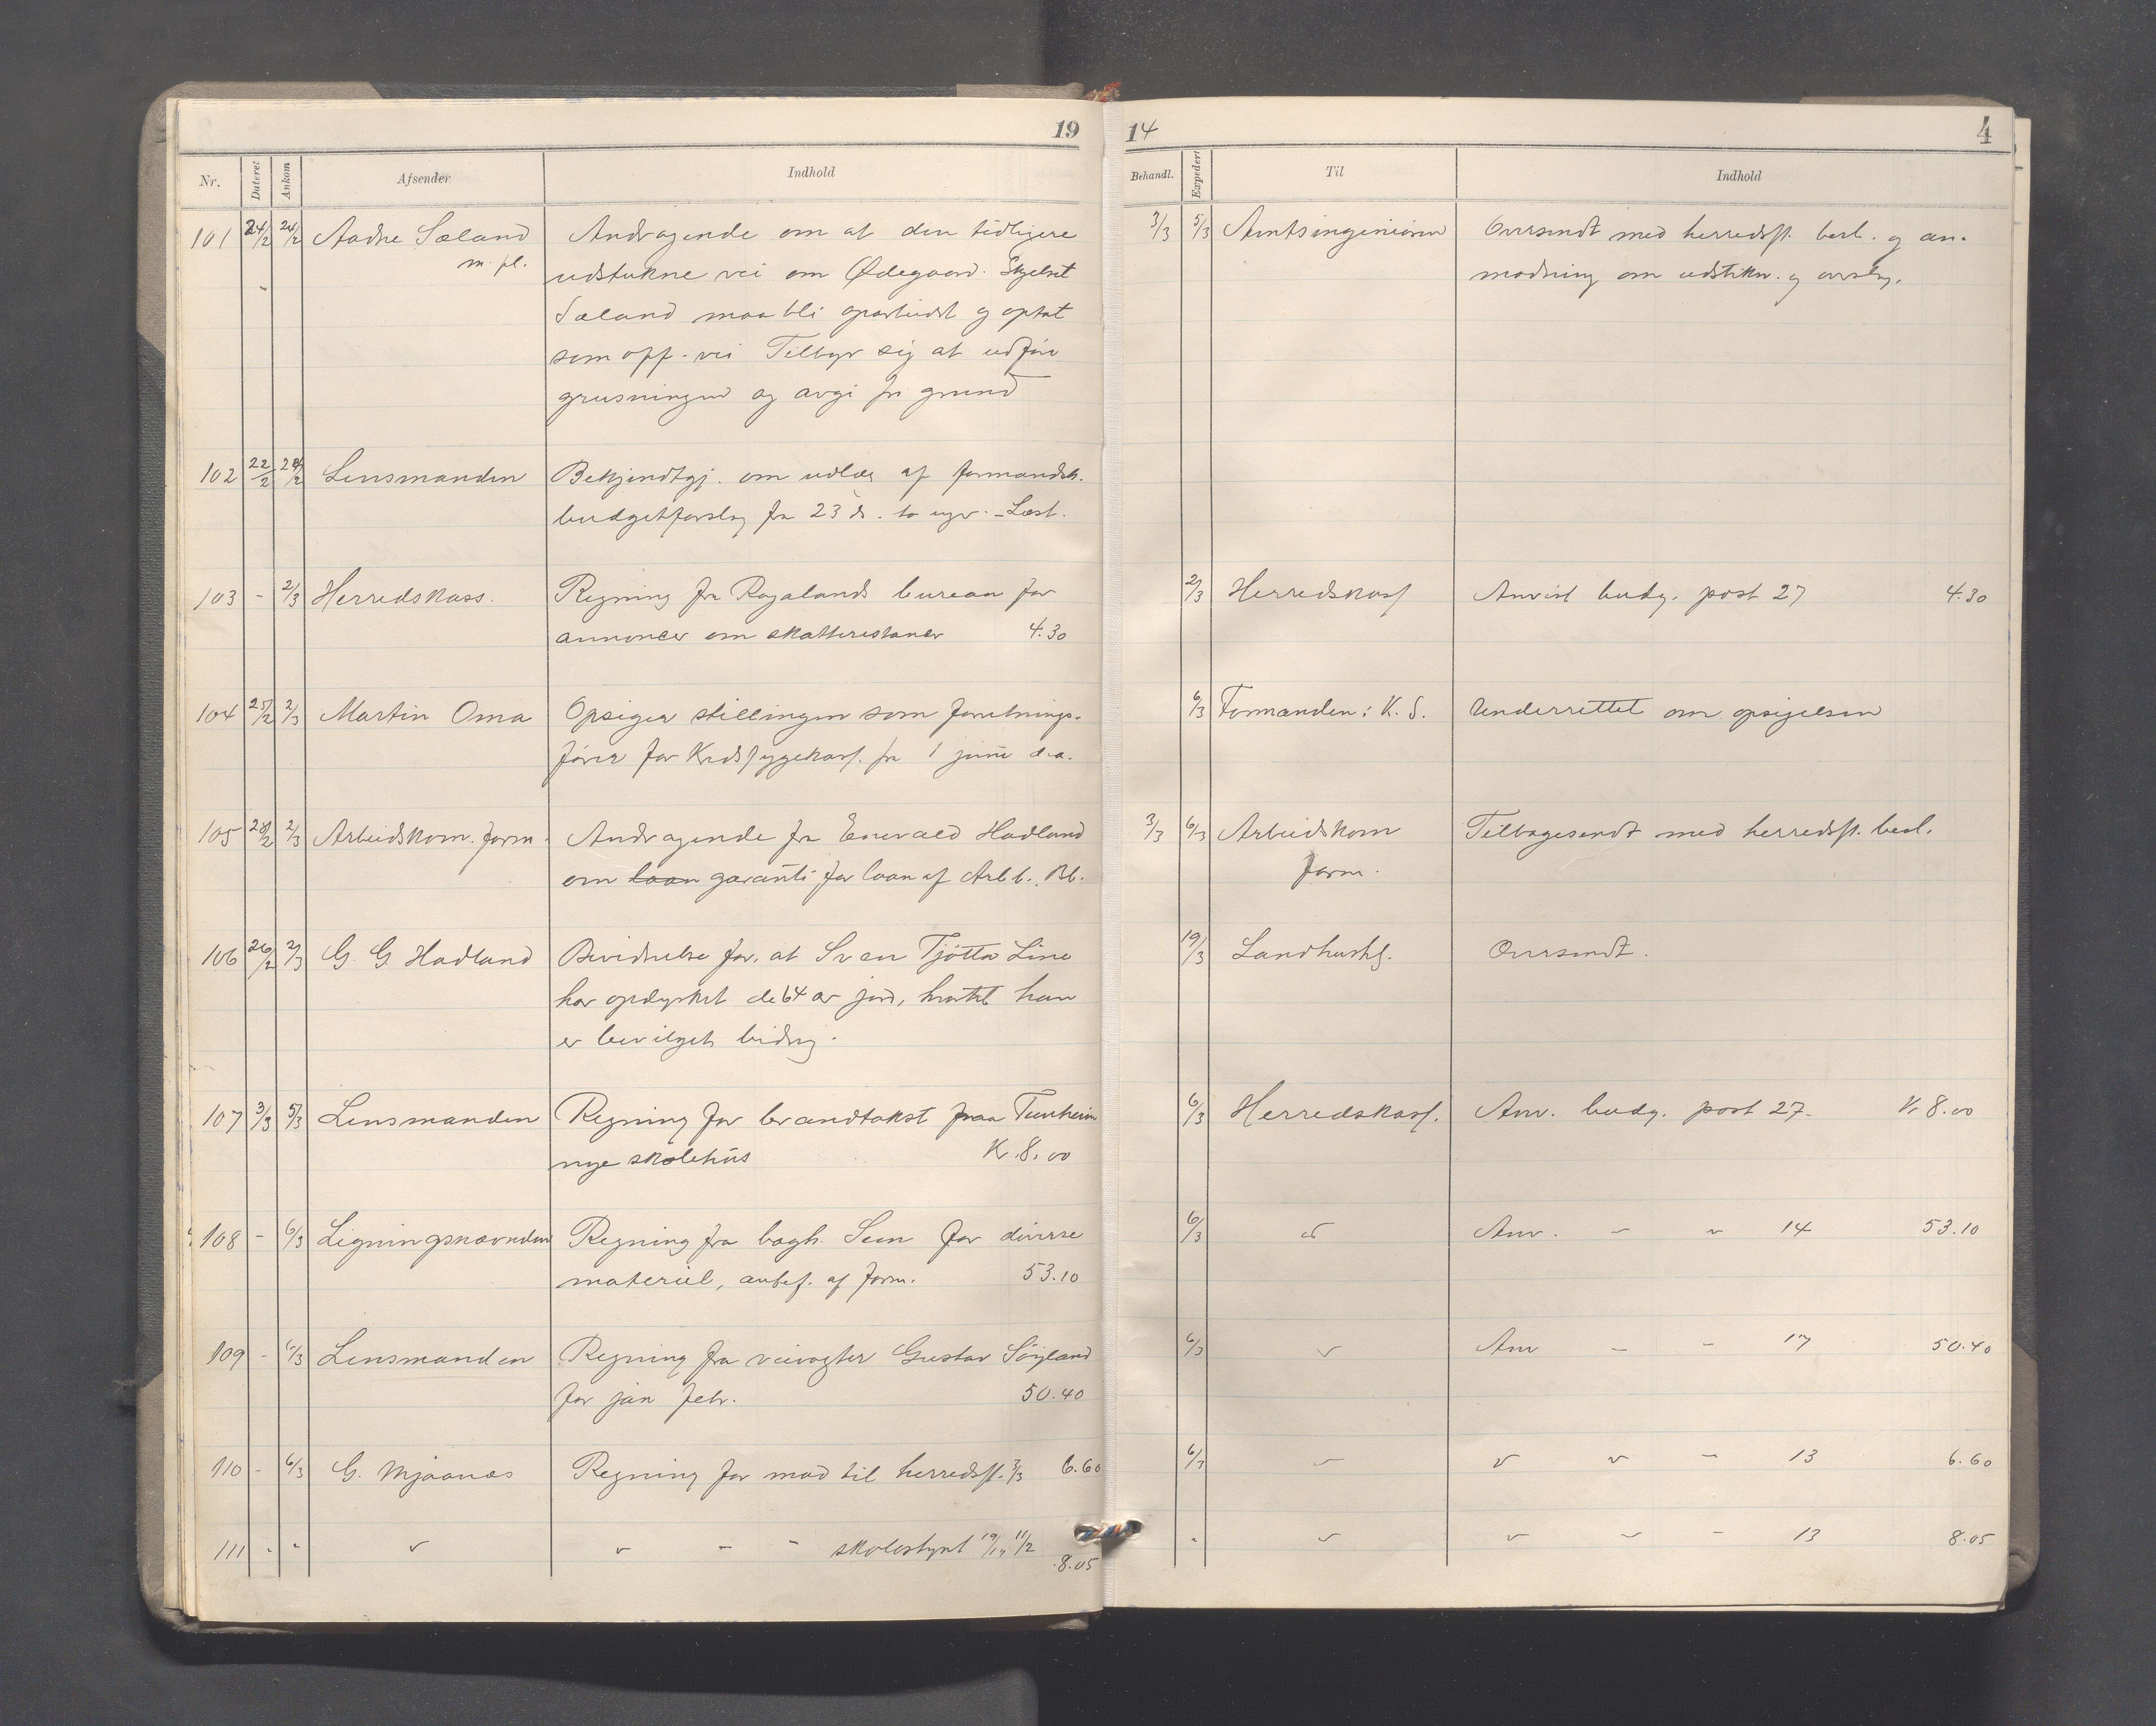 19
Nr. Dateret Ankom Afsender Indhold
101 24/2 24/2 Aadne Sæland Andragende om at den tidligere
m. fl. udstukne vei om Ødegaard. Skjelset
Sæland maa bli oparbeidst og optat
som off. vei Tilbyr sig at udføre
grusningen og avgi fri grund
102 22/2 24/2 Lensmanden Bekjendtgj. om udlæg af formandsk.
budgetforslag fra 23 ds. to uger. - Læst.
103 - 2/3 Herredskass. Regning fra Rogalands bureau for
annoncer om skatterestancer 4.30
104 25/2 2/3 Martin Oma Opsiger stillingen som forretnings-
fører for Kredssygekass. fra 1 juni d.a.
105 28/2 2/3 Arbeidskom. form. Andragende fra Enevald Hadland
om laan garanti for laan af Arb. b. Bl.
106 26/2 2/3 G. G. Hadland Bevidnelse for, at Sven Tjøtta Line
har opdyrket de 64 ar jord, hvortil han
er bevilget bidrag.
107 3/3 5/3 Lensmanden Regning for brandtakst paa Tunheim
nye skolehus Kr. 8.00
108 - 6/3 Ligningsnævnden Regning fra bogh. Sem for diverse
materiel, anbef. af form. 53.10
109 - 6/3 Lensmanden Regning fra veivogter Gustav Søyland
for jan febr. 50.40
110 - 6/3 G. Mjaanæs Regning for mad til herredsst. 3/3 6.60
111 - - " " - - skolestyret 11/2
8.05
14 4
Behandl. Expedert Til Indhold
3/3 5/3 Amtsingeniøren Oversendt med herredsst. besl. og an-
modning om udstikn. og overslag.
2/3 Herredskass Anvist budg. post 27 4.30
6/3 Formanden i K. S. Underrettet om opsigelsen
3/3 6/3 Arbeidskom Tilbagesendt med herredsst. besl.
form.
19/3 Landhushs. Oversendt.
6/3 Herredskass. Anv. budg. post 27. Kr 8.00
6/3 do Anv. - " 14 53.10
6/3 " Anv - - 17 50.40
6/3 " " " - 13 6.60
- " " " - 13 8.05